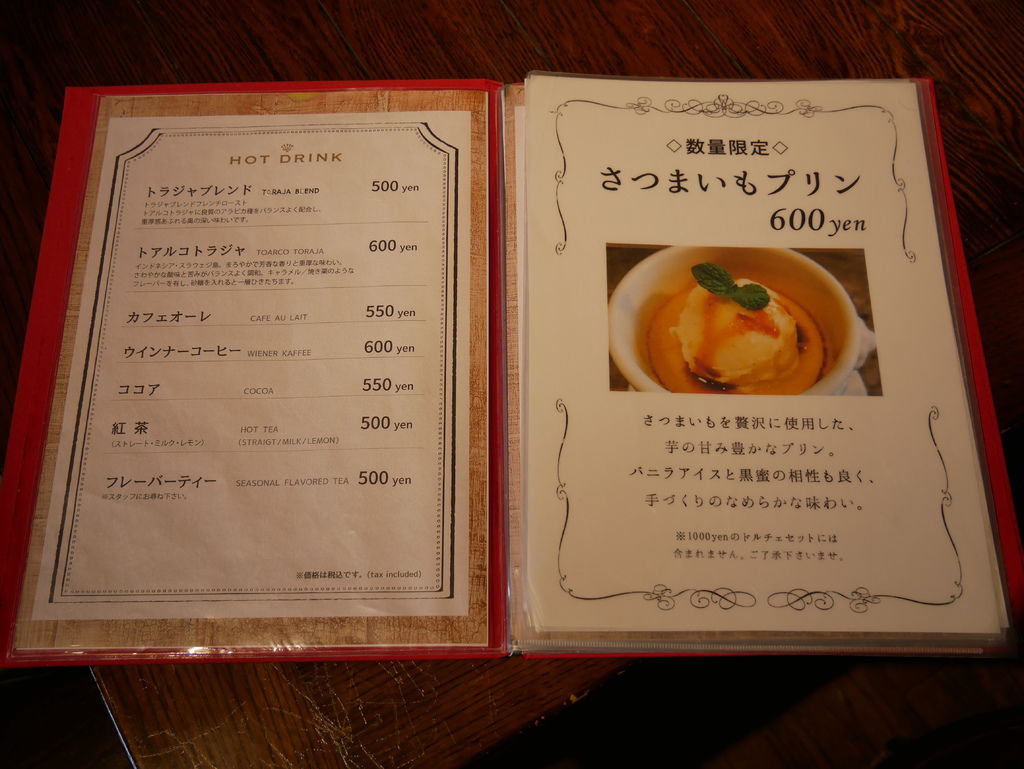 HOT DRINK
トラジャブレンド TORAJA BLEND 500 yen
トラジャブレンドフレンチロースト
トアルコトラジャに良質のアラビカ種をバランスよく配合し、
重厚感あふれる奥の深い味わいです。
トアルコトラジャ TOARCO TORAJA 600 yen
インドネシア・スラウェシ島。まろやかで芳香な香りと重厚な味わい。
さわやかな酸味と苦みがバランスよく調和。キャラメル/焼き菓のような
フレーバーを有し、砂糖を入れると一層ひきたちます。
カフェオーレ CAFE AU LAIT 550 yen
ウインナーコーヒー WIENER KAFFEE 600 yen
ココア COCOA 550 yen
紅茶 HOT TEA 500 yen
(ストレート・ミルク・レモン) (STRAIGT/MILK/LEMON)
フレーバーティー SEASONAL FLAVORED TEA 500 yen
※スタッフにお尋ね下さい。
※価格は税込です。(tax included)
◇数量限定◇
さつまいもプリン
600yen
さつまいもを贅沢に使用した、
芋の甘み豊かなプリン。
バニラアイスと黒蜜の相性も良く、
手づくりのなめらかな味わい。
※1000yenのドルチェセットには
含まれません。ご了承下さいませ。